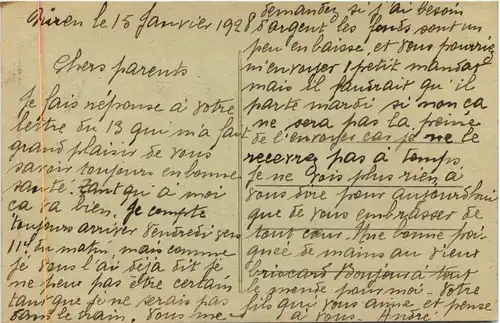 Düren le 15 Janvier 1928
Chers parents
Je fais réponse à votre
lettre du 13 qui m'a fait
grand plaisir de vous
savoir toujours en bonne
santé. Tant qui à moi
ça va bien. Je compte
toujours arriver Vendredi vers
11h du matin, mais comme
je vous l'ai déjà dit je
ne peux pas etre certain
tant que je ne serais pas
dans le train. Vous me
demandez si j'ai besoin
d'argent les fonds sont un
peu en baisse, et vous pourriez
m'envoyer 1 petit mandat
mais il faudrait qu'il
parte mardi si non ca
ne sera pas la peine
de l'envoyer car je ne le
recevrez pas à temps.
Je ne vois plus rien à
vous dire pour aujourd'hui
que de vous embrasser de
tout cœur. Une bonne poi-
gnée de mains au vieux
briscard Bonjour à tout
le monde pour moi. Votre
fils qui vous aime et pense
à vous. André